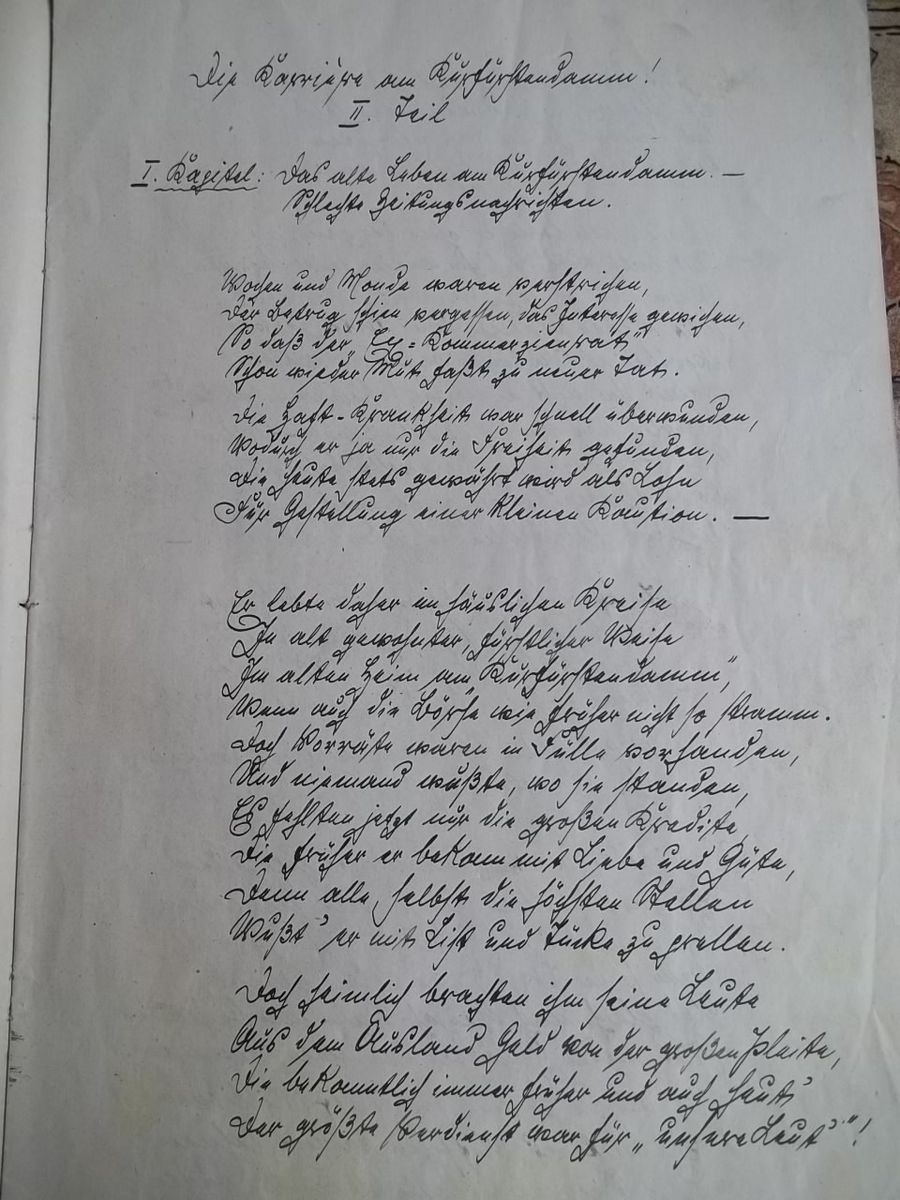 Die Karriere am Kurfürstendamm!
II. Teil
I. Kapitel: Das alte Leben am Kurfürstendamm. —
Schlechte Zeitungsnachrichten.
Wochen und Monde waren verstrichen,
Der Betrug schien vergessen, das Interesse gewichen,
So daß der „Ex-Kommerzienrat"
Schon wieder Mut faßt zu neuer Tat.
Die Haft-Krankheit war schnell überwunden,
Wodurch er ja nur die Freiheit gefunden,
Die heute stets gewährt wird als Lohn
Für Gestellung einer kleinen Kaution. —
Er lebte daher im häuslichen Kreise
In alt gewohnter, fürstlicher Weise
Im alten Heim am Kurfürstendamm",
Wenn auch die Börse wie früher nicht so stramm.
Doch Vorräte waren in Fülle vorhanden,
Und niemand wußte, wo sie standen,
Es fehlten jetzt nur die großen Kredite
Die früher er bekam mit Liebe und Güte,
Denn alle, selbst die höchsten Stellen
Wußt' er mit List und Tücke zu prellen.
Doch heimlich brachten ihm seine Leute
Aus dem Ausland Geld von der großen Pleite,
Die bekanntlich immer früher und auch heut'
Der größte Verdienst war für „unsere Leut'"!